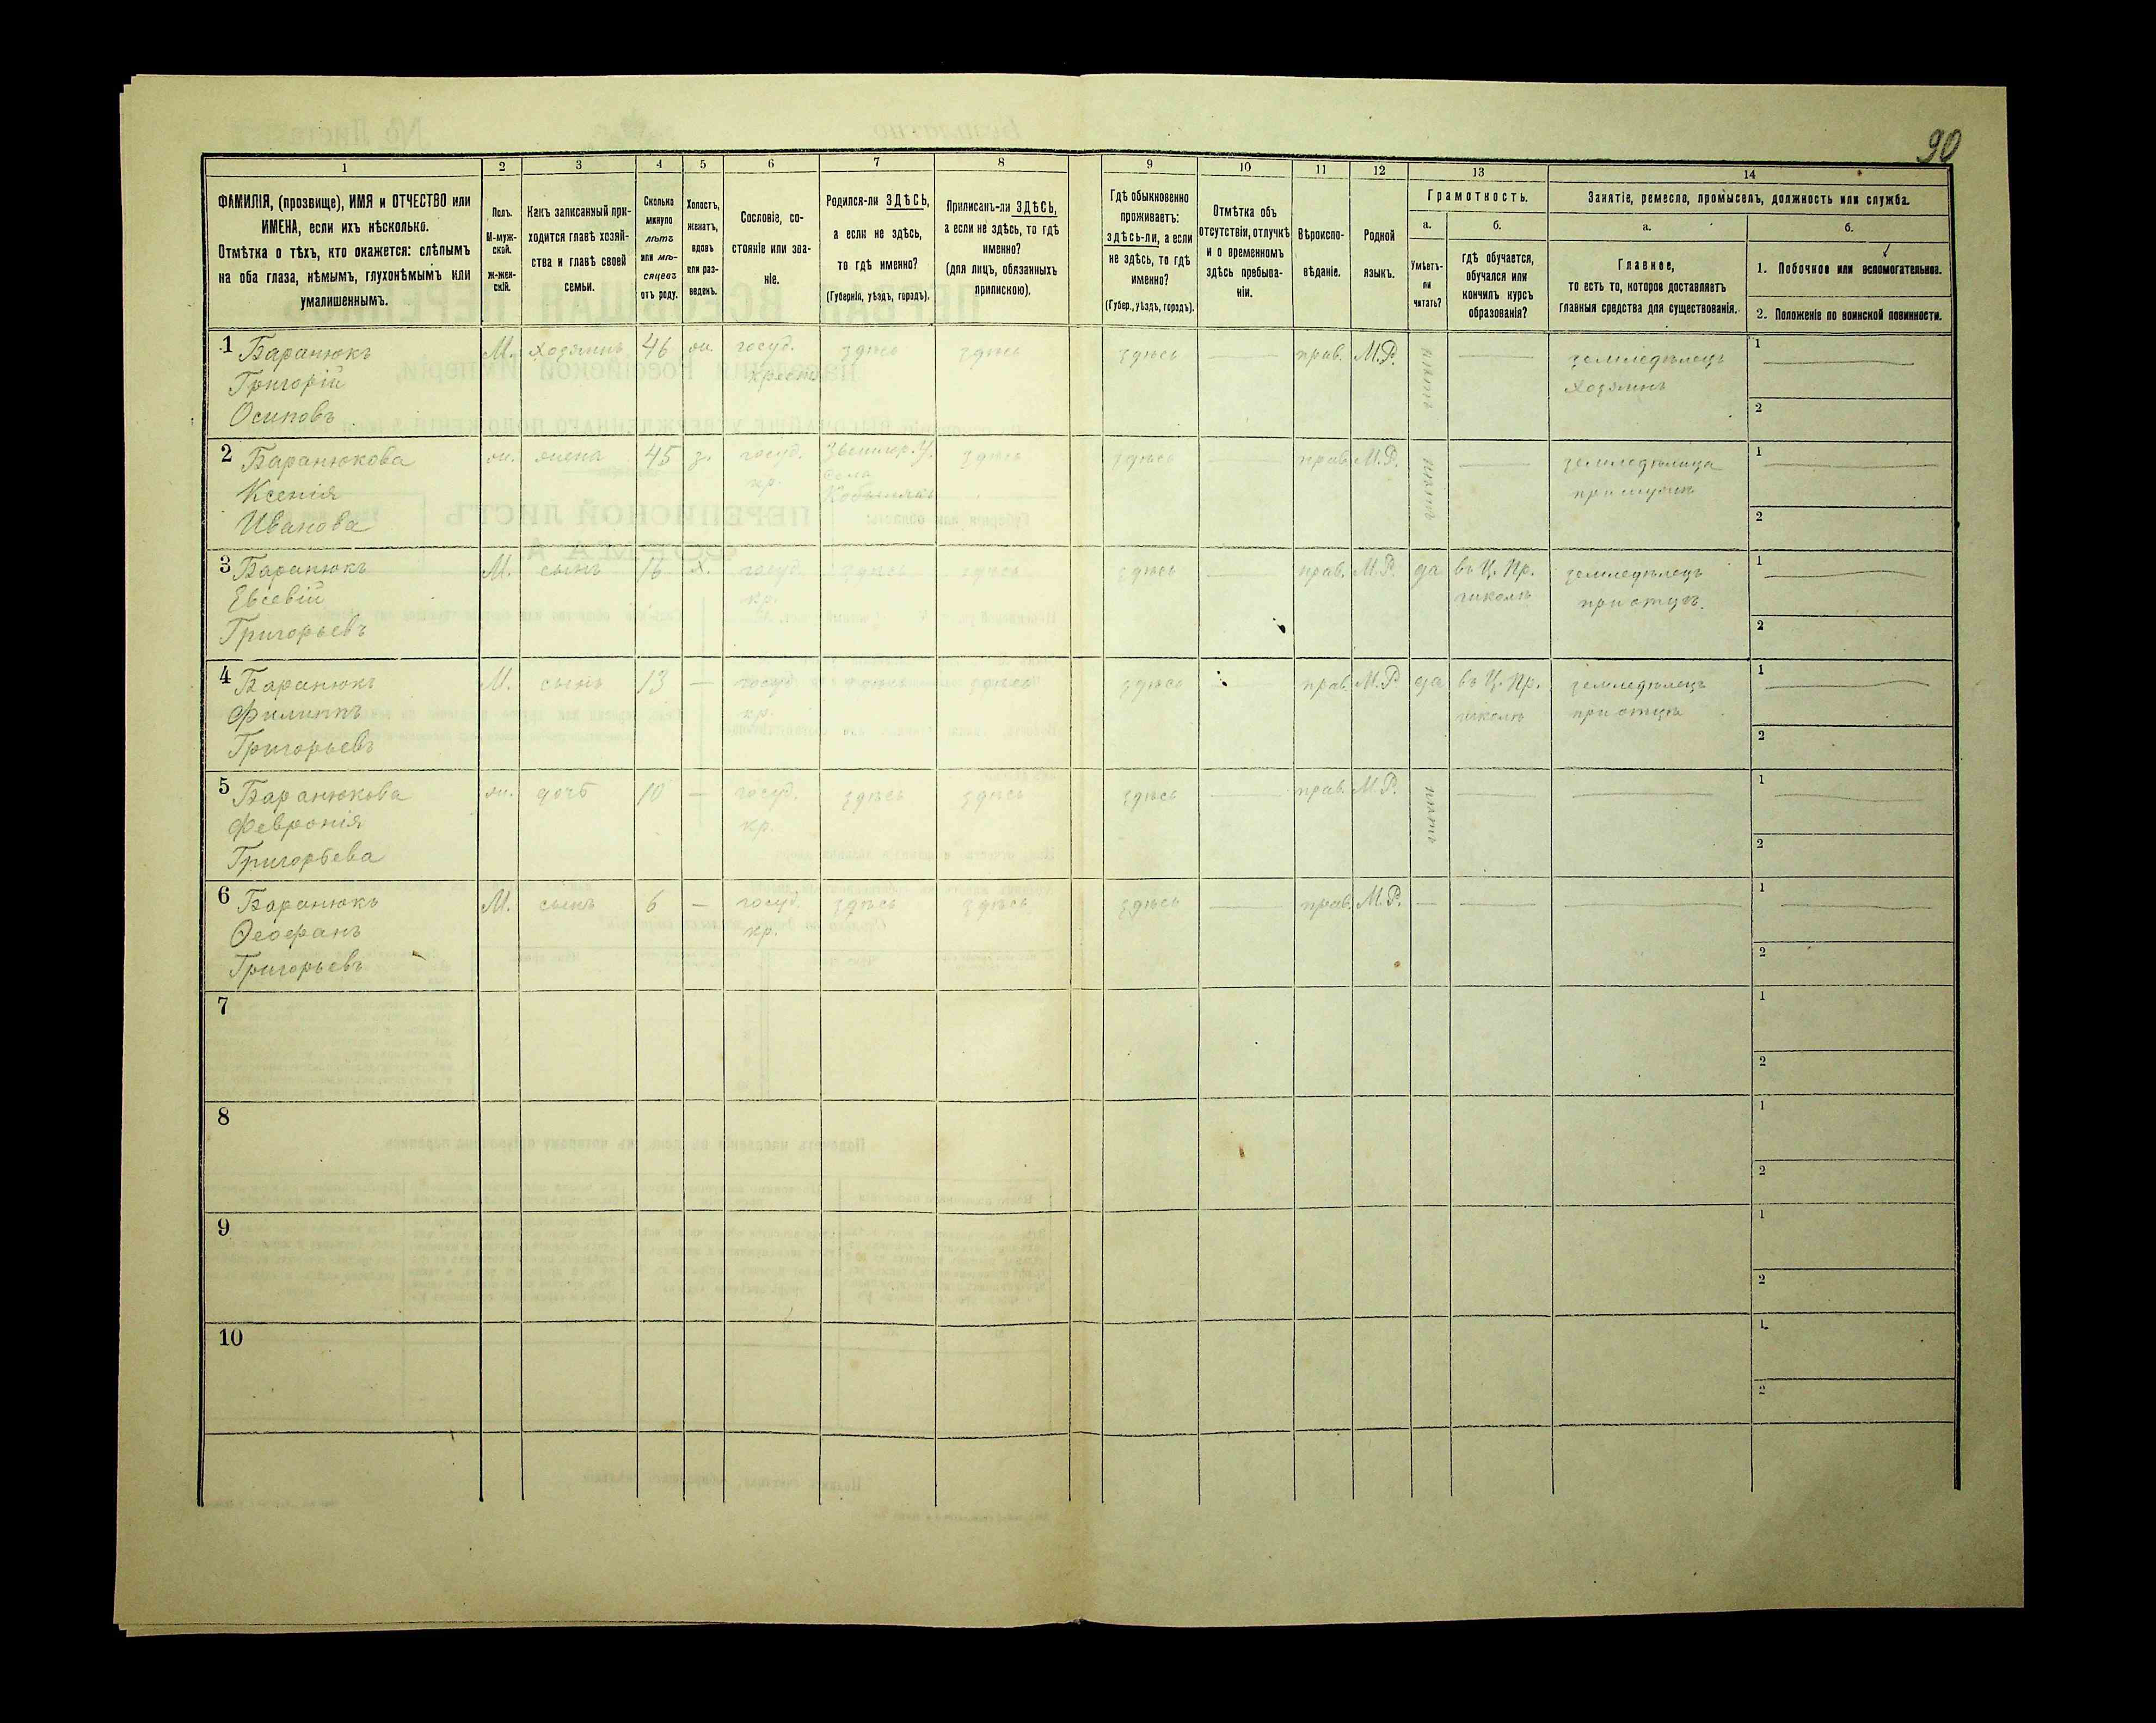 90
1 2 3 4 5 6 7 8 9 10 11 12 13 14
ФАМИЛІЯ, (прозвище), ИМЯ и ОТЧЕСТВО или
ИМЕНА, если ихъ нѣсколько.
Отмѣтка о тѣхъ, кто окажется: слѣпымъ
на оба глаза, нѣмымъ, глухонѣмымъ или
умалишеннымъ.
Полъ.
М-муж-
ской.
ж-жен-
скій.
Какъ записанный при-
ходится главѣ хозяй-
ства и главѣ своей
семьи.
Сколько
минуло
лѣтъ
или мѣ-
сяцевъ
отъ роду.
Холостъ,
женатъ,
вдовъ
или раз-
веденъ.
Сословіе, со-
стояніе или зва-
ніе.
Родился-ли ЗДѢСЬ,
а если не здѣсь,
то гдѣ именно?
(Губернія, уѣздъ, городъ).
Приписанъ-ли ЗДѢСЬ,
а если не здѣсь, то гдѣ
именно?
(для лицъ, обязанныхъ
припискою).
Гдѣ обыкновенно
проживаетъ:
здѣсь-ли, а если
не здѣсь, то гдѣ
именно?
(Губер., уѣздъ, городъ).
Отмѣтка объ
отсутствіи, отлучкѣ
и о временномъ
здѣсь пребыва-
ніи.
Вѣроиспо-
вѣданіе.
Родной
языкъ.
Грамотность.
а.
Умѣетъ-
ли
читать?
б.
гдѣ обучается,
обучался или
кончилъ курсъ
образованія?
Занятіе, ремесло, промыселъ, должность или служба.
а.
Главное,
то есть то, которое доставляетъ
главныя средства для существованія.
б.
1. Побочное или вспомогательное.
2. Положеніе по воинской повинности.
1 Баранюкъ М. хозяинъ 46 ж. госуд. здѣсь здѣсь здѣсь — прав. М.Р. нѣтъ — земледѣлецъ 1 —
Григорій крест. хозяинъ
Осиповъ 2
2 Баранюкова ж. жена 45 з. госуд. Звенигор. у. здѣсь здѣсь — прав. М.Р. нѣтъ — земледѣлица 1 —
Ксенія кр. села при мужѣ
Иванова 2
3 Баранюкъ М. сынъ 16 х. госуд. здѣсь здѣсь здѣсь — прав. М.Р. да въ Ц. Пр. земледѣлецъ 1 —
Евсевій кр. школѣ при отцѣ.
Григорьевъ 2
4 Баранюкъ М. сынъ 13 — госуд. здѣсь здѣсь здѣсь — прав. М.Р. да въ Ц. Пр. земледѣлецъ 1 —
Филиппъ кр. школѣ при отцѣ
Григорьевъ 2
5 Баранюкова ж. дочь 10 — госуд. здѣсь здѣсь здѣсь — прав. М.Р. нѣтъ — — 1 —
Февронія кр.
Григорьева 2
6 Баранюкъ М. сынъ 6 — госуд. здѣсь здѣсь здѣсь — прав. М.Р. — — — 1 —
Ѳеофанъ кр.
Григорьевъ 2
7 1
2
8 1
2
9 1
2
10 1
2